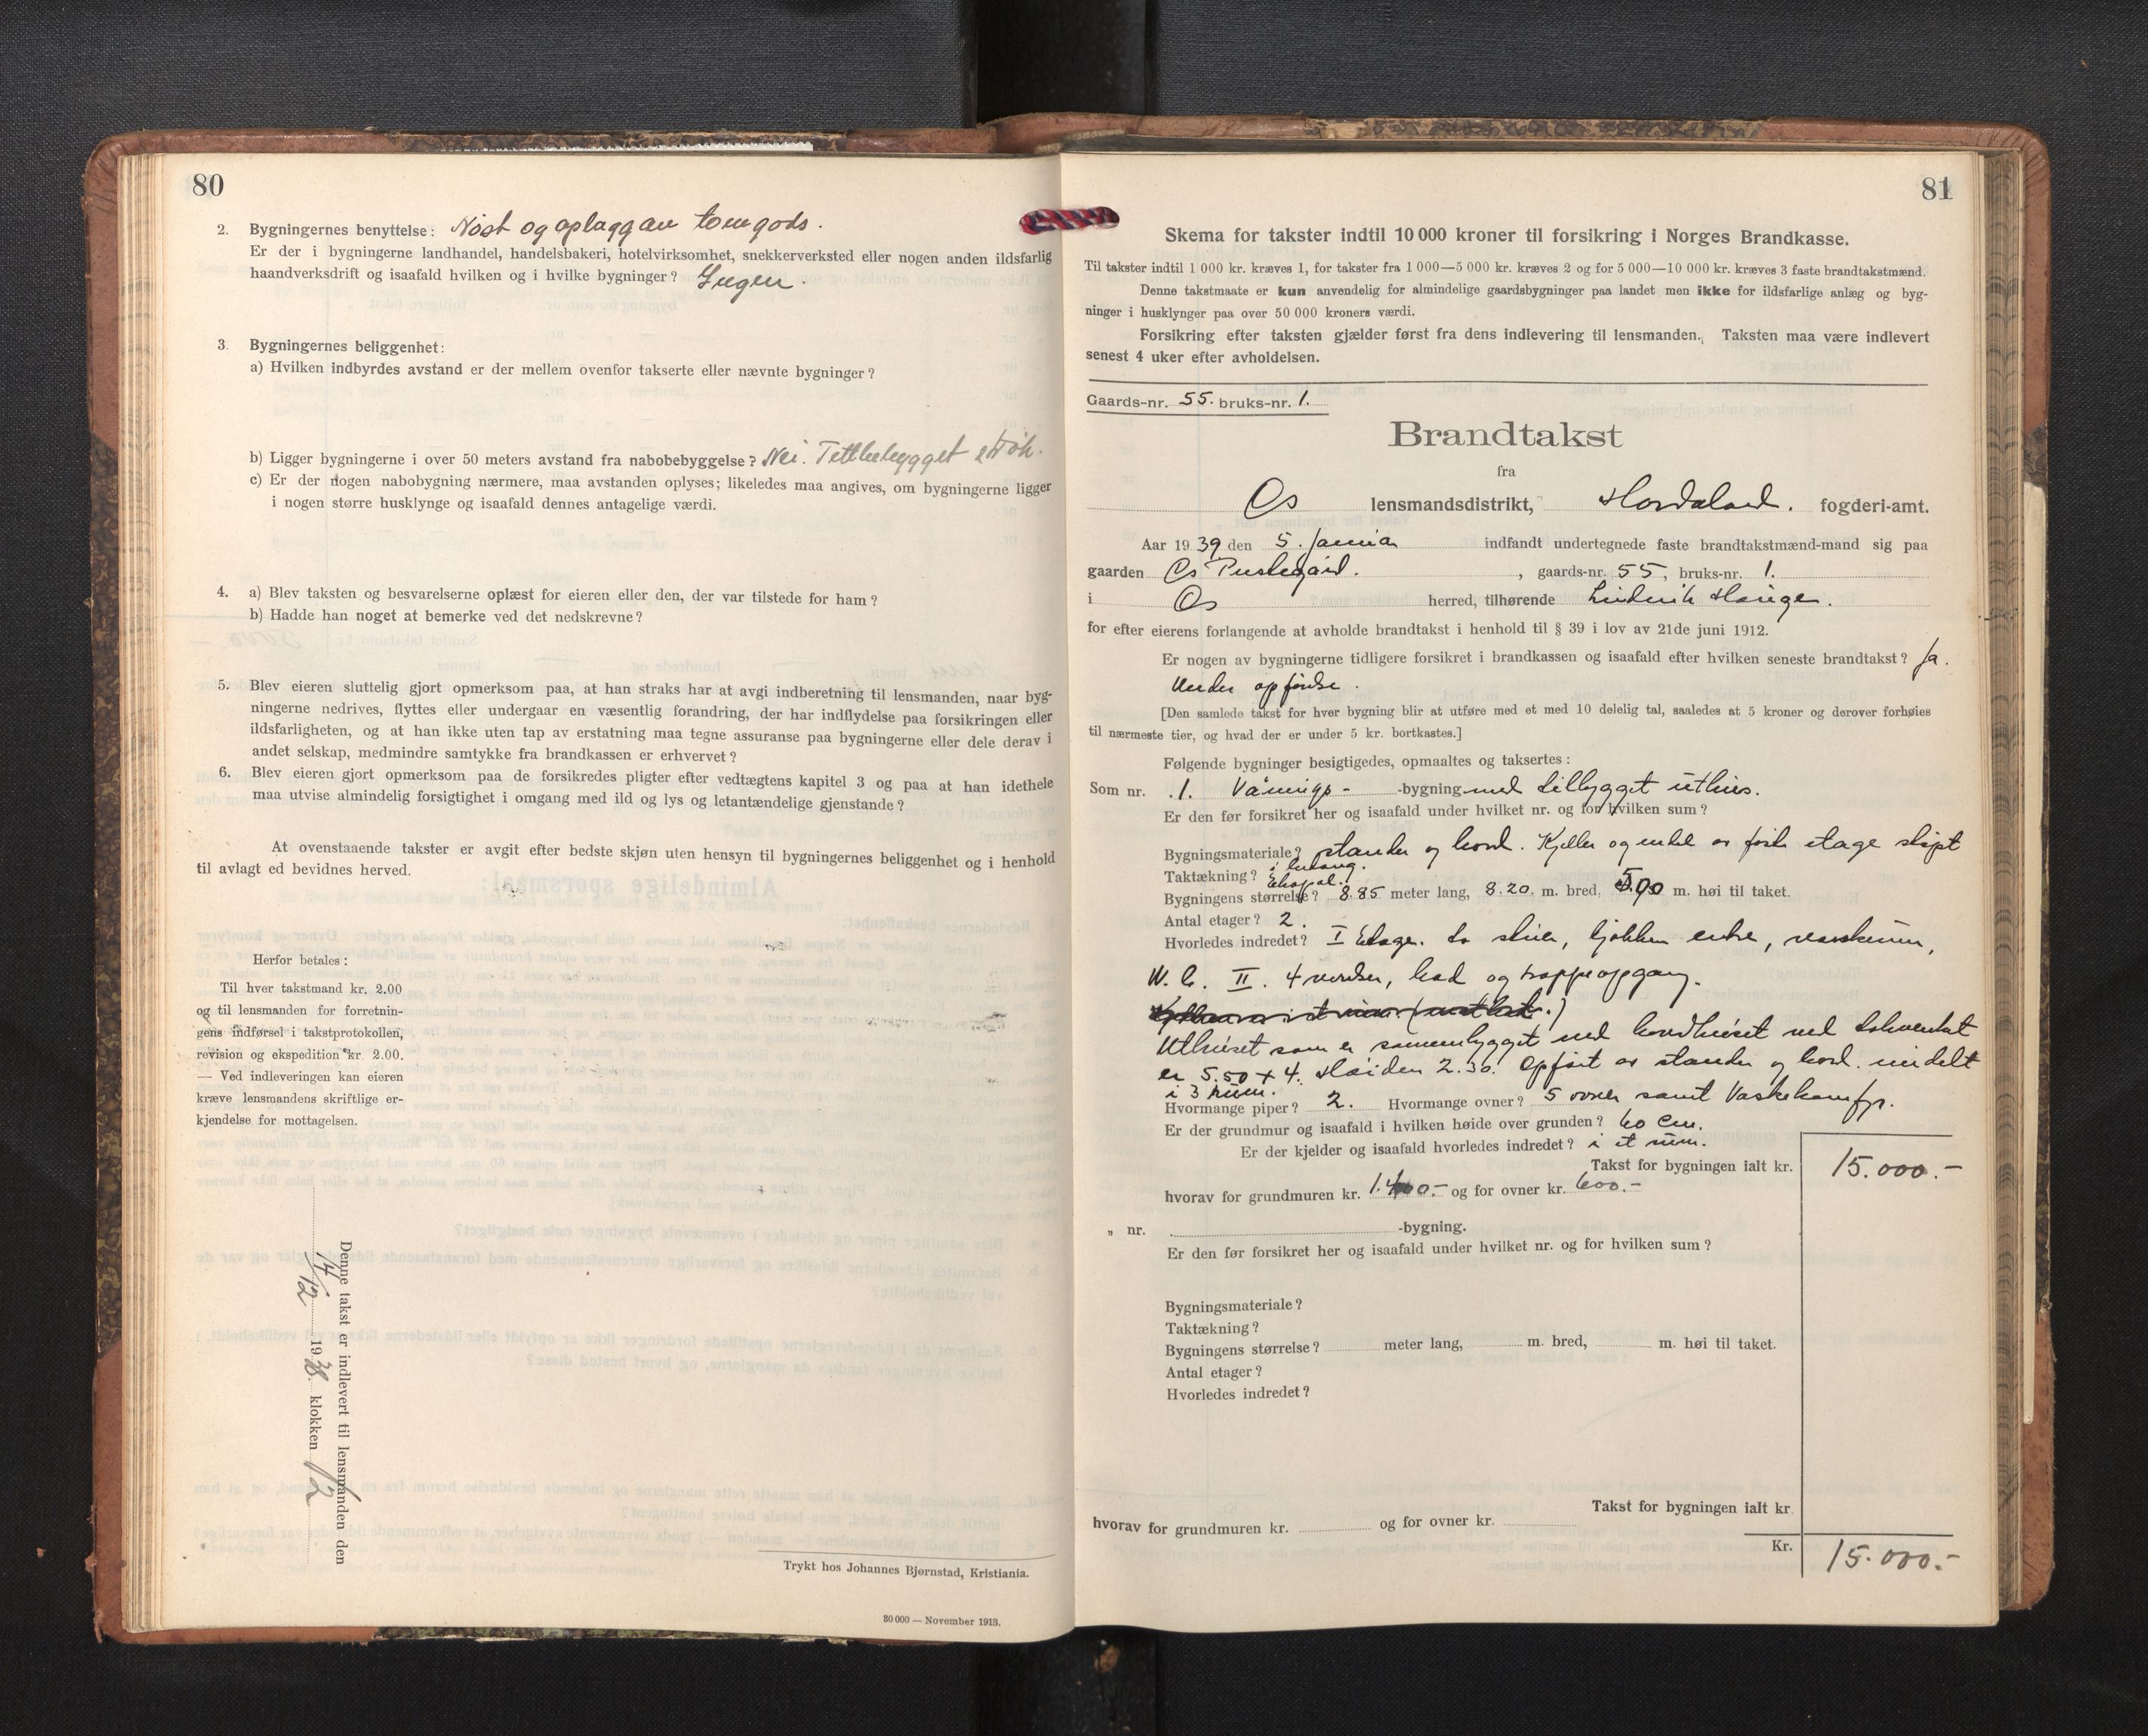 80
2. Bygningernes benyttelse: Nöst og oplagg av tomgods.
Er der i bygningerne landhandel, handelsbakeri, hotelvirksomhet, snekkerverksted eller nogen anden ildsfarlig
haandverksdrift og isaafald hvilken og i hvilke bygninger? Ingen.
3. Bygningernes beliggenhet:
a) Hvilken indbyrdes avstand er der mellem ovenfor takserte eller nævnte bygninger?
b) Ligger bygningerne i over 50 meters avstand fra nabobebyggelse? Nei. Tettbebygget strök.
c) Er der nogen nabobygning nærmere, maa avstanden oplyses; likeledes maa angives, om bygningerne ligger
i nogen større husklynge og isaafald dennes antagelige værdi.
4. a) Blev taksten og besvarelserne oplæst for eieren eller den, der var tilstede for ham?
b) Hadde han noget at bemerke ved det nedskrevne?
5. Blev eieren sluttelig gjort opmerksom paa, at han straks har at avgi indberetning til lensmanden, naar byg-
ningerne nedrives, flyttes eller undergaar en væsentlig forandring, der har indflydelse paa forsikringen eller
ildsfarligheten, og at han ikke uten tap av erstatning maa tegne assuranse paa bygningerne eller dele derav i
andet selskap, medmindre samtykke fra brandkassen er erhvervet?
6. Blev eieren gjort opmerksom paa de forsikredes pligter efter vedtægtens kapitel 3 og paa at han idethele
maa utvise almindelig forsigtighet i omgang med ild og lys og letantændelige gjenstande?
At ovenstaaende takster er avgit efter bedste skjøn uten hensyn til bygningernes beliggenhet og i henhold
til avlagt ed bevidnes herved.
Herfor betales:
Til hver takstmand kr. 2.00
og til lensmanden for forretnin-
gens indførsel i takstprotokollen,
revision og ekspedition kr 2.00.
— Ved indleveringen kan eieren
kræve lensmandens skriftlige er-
kjendelse for mottagelsen.
Denne takst er indlevert til lensmanden den
14/12 1938. klokken 12
Trykt hos Johannes Bjørnstad, Kristiania.
30 000 — November 1913.
81
Skema for takster indtil 10 000 kroner til forsikring i Norges Brandkasse.
Til takster indtil 1 000 kr. kræves 1, for takster fra 1 000—5 000 kr. kræves 2 og for 5 000—10 000 kr. kræves 3 faste brandtakstmænd.
Denne takstmaate er kun anvendelig for almindelige gaardsbygninger paa landet men ikke for ildsfarlige anlæg og byg-
ninger i husklynger paa over 50 000 kroners værdi.
Forsikring efter taksten gjælder først fra dens indlevering til lensmanden. Taksten maa være indlevert
senest 4 uker efter avholdelsen.
Gaards-nr. 55. bruks-nr. 1.
Brandtakst
fra
Os lensmandsdistrikt, Hordaland. fogderi-amt.
Aar 1939 den 5. Januar indfandt undertegnede faste brandtakstmænd-mand sig paa
gaarden Os Prestegård. , gaards-nr. 55, bruks-nr. 1.
i Os herred, tilhørende Hauge.
for efter eierens forlangende at avholde brandtakst i henhold til § 39 i lov av 21de juni 1912.
Er nogen av bygningerne tidligere forsikret i brandkassen og isaafald efter hvilken seneste brandtakst? Ja.
Under opförelse.
[Den samlede takst for hver bygning blir at utføre med et med 10 delelig tal, saaledes at 5 kroner og derover forhøies
til nærmeste tier, og hvad der er under 5 kr. bortkastes.]
Følgende bygninger besigtigedes, opmaaltes og taksertes:
Som nr. 1. Vånings- -bygning med tilbygget uthus.
Er den før forsikret her og isaafald under hvilket nr. og for hvilken sum?
Bygningsmateriale? stander og bord. Kjeller og endel av förste etage støpt
i betong.
Taktækning? Eternal.
Bygningens størrelse? 8.85 meter lang, 8.20. m. bred, 5.90 m. høi til taket.
Antal etager? 2.
Hvorledes indredet? I Etage. to stuer, kjökken entre, vaskerum,
W. C. II. 4 værelser, bad og trappeopgang.
Uthuset som er sammenbygget med hovedhuset ved
er 5.50 x 4. Høiden 2.30. Opfört av stander og bord. inndelt
i 3 rum.
Hvormange piper? 2. Hvormange ovner? 5 ovner samt Vaskekomfyr.
Er der grundmur og isaafald i hvilken høide over grunden? 60 cm.
Er der kjelder og isaafald hvorledes indredet? i et rum.
Takst for bygningen ialt kr. 15.000.-
hvorav for grundmuren kr. 1.400.- og for ovner kr. 600.-
„ nr. -bygning.
Er den før forsikret her og isaafald under hvilket nr. og for hvilken sum?
Bygningsmateriale?
Taktækning?
Bygningens størrelse? meter lang, m. bred, m. høi til taket.
Antal etager?
Hvorledes indredet?
Takst for bygningen ialt kr.
hvorav for grundmuren kr. og for ovner kr.
Kr. 15.000.-